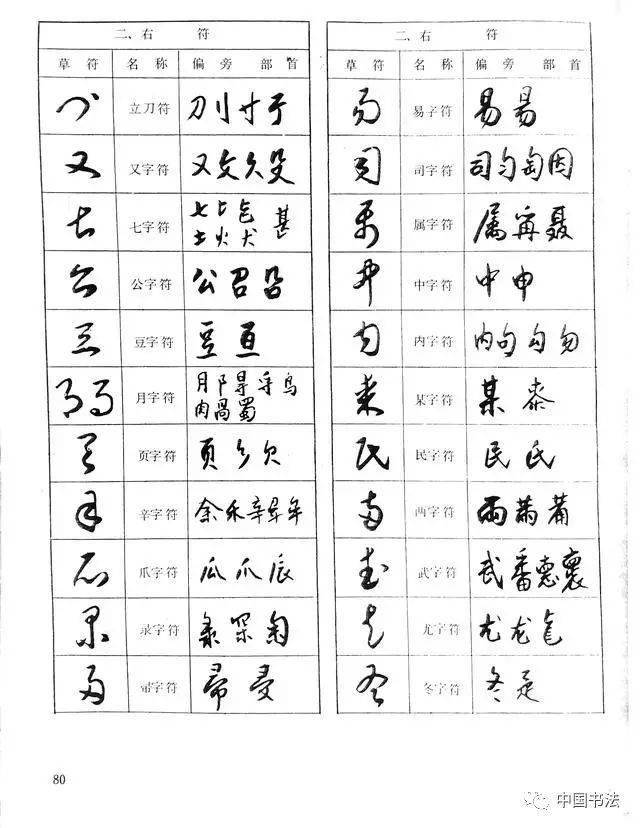 二、右 符
草符 名称 偏旁 部首
立刀符 刀刂寸亍
又字符 又攵久殳
七字符 七匕乞甚
土火犬
公字符 公召
豆字符 豆亘
月字符 月阝寻乎鸟
肉咼蜀
页字符 页彡欠
辛字符 余禾辛
爪字符 瓜爪辰
录字符 录罙匊
帚字符 帚
二、右 符
草符 名称 偏旁 部首
易字符 易昜
司字符 司匀匋因
属字符 属甯聂
中字符 中申
内字符 内句勾勿
某字符 某泰
民字符 民氏
两字符 兩㒼
武字符 武番惠褱
尤字符 尤龙
冬字符 冬
80
中国书法